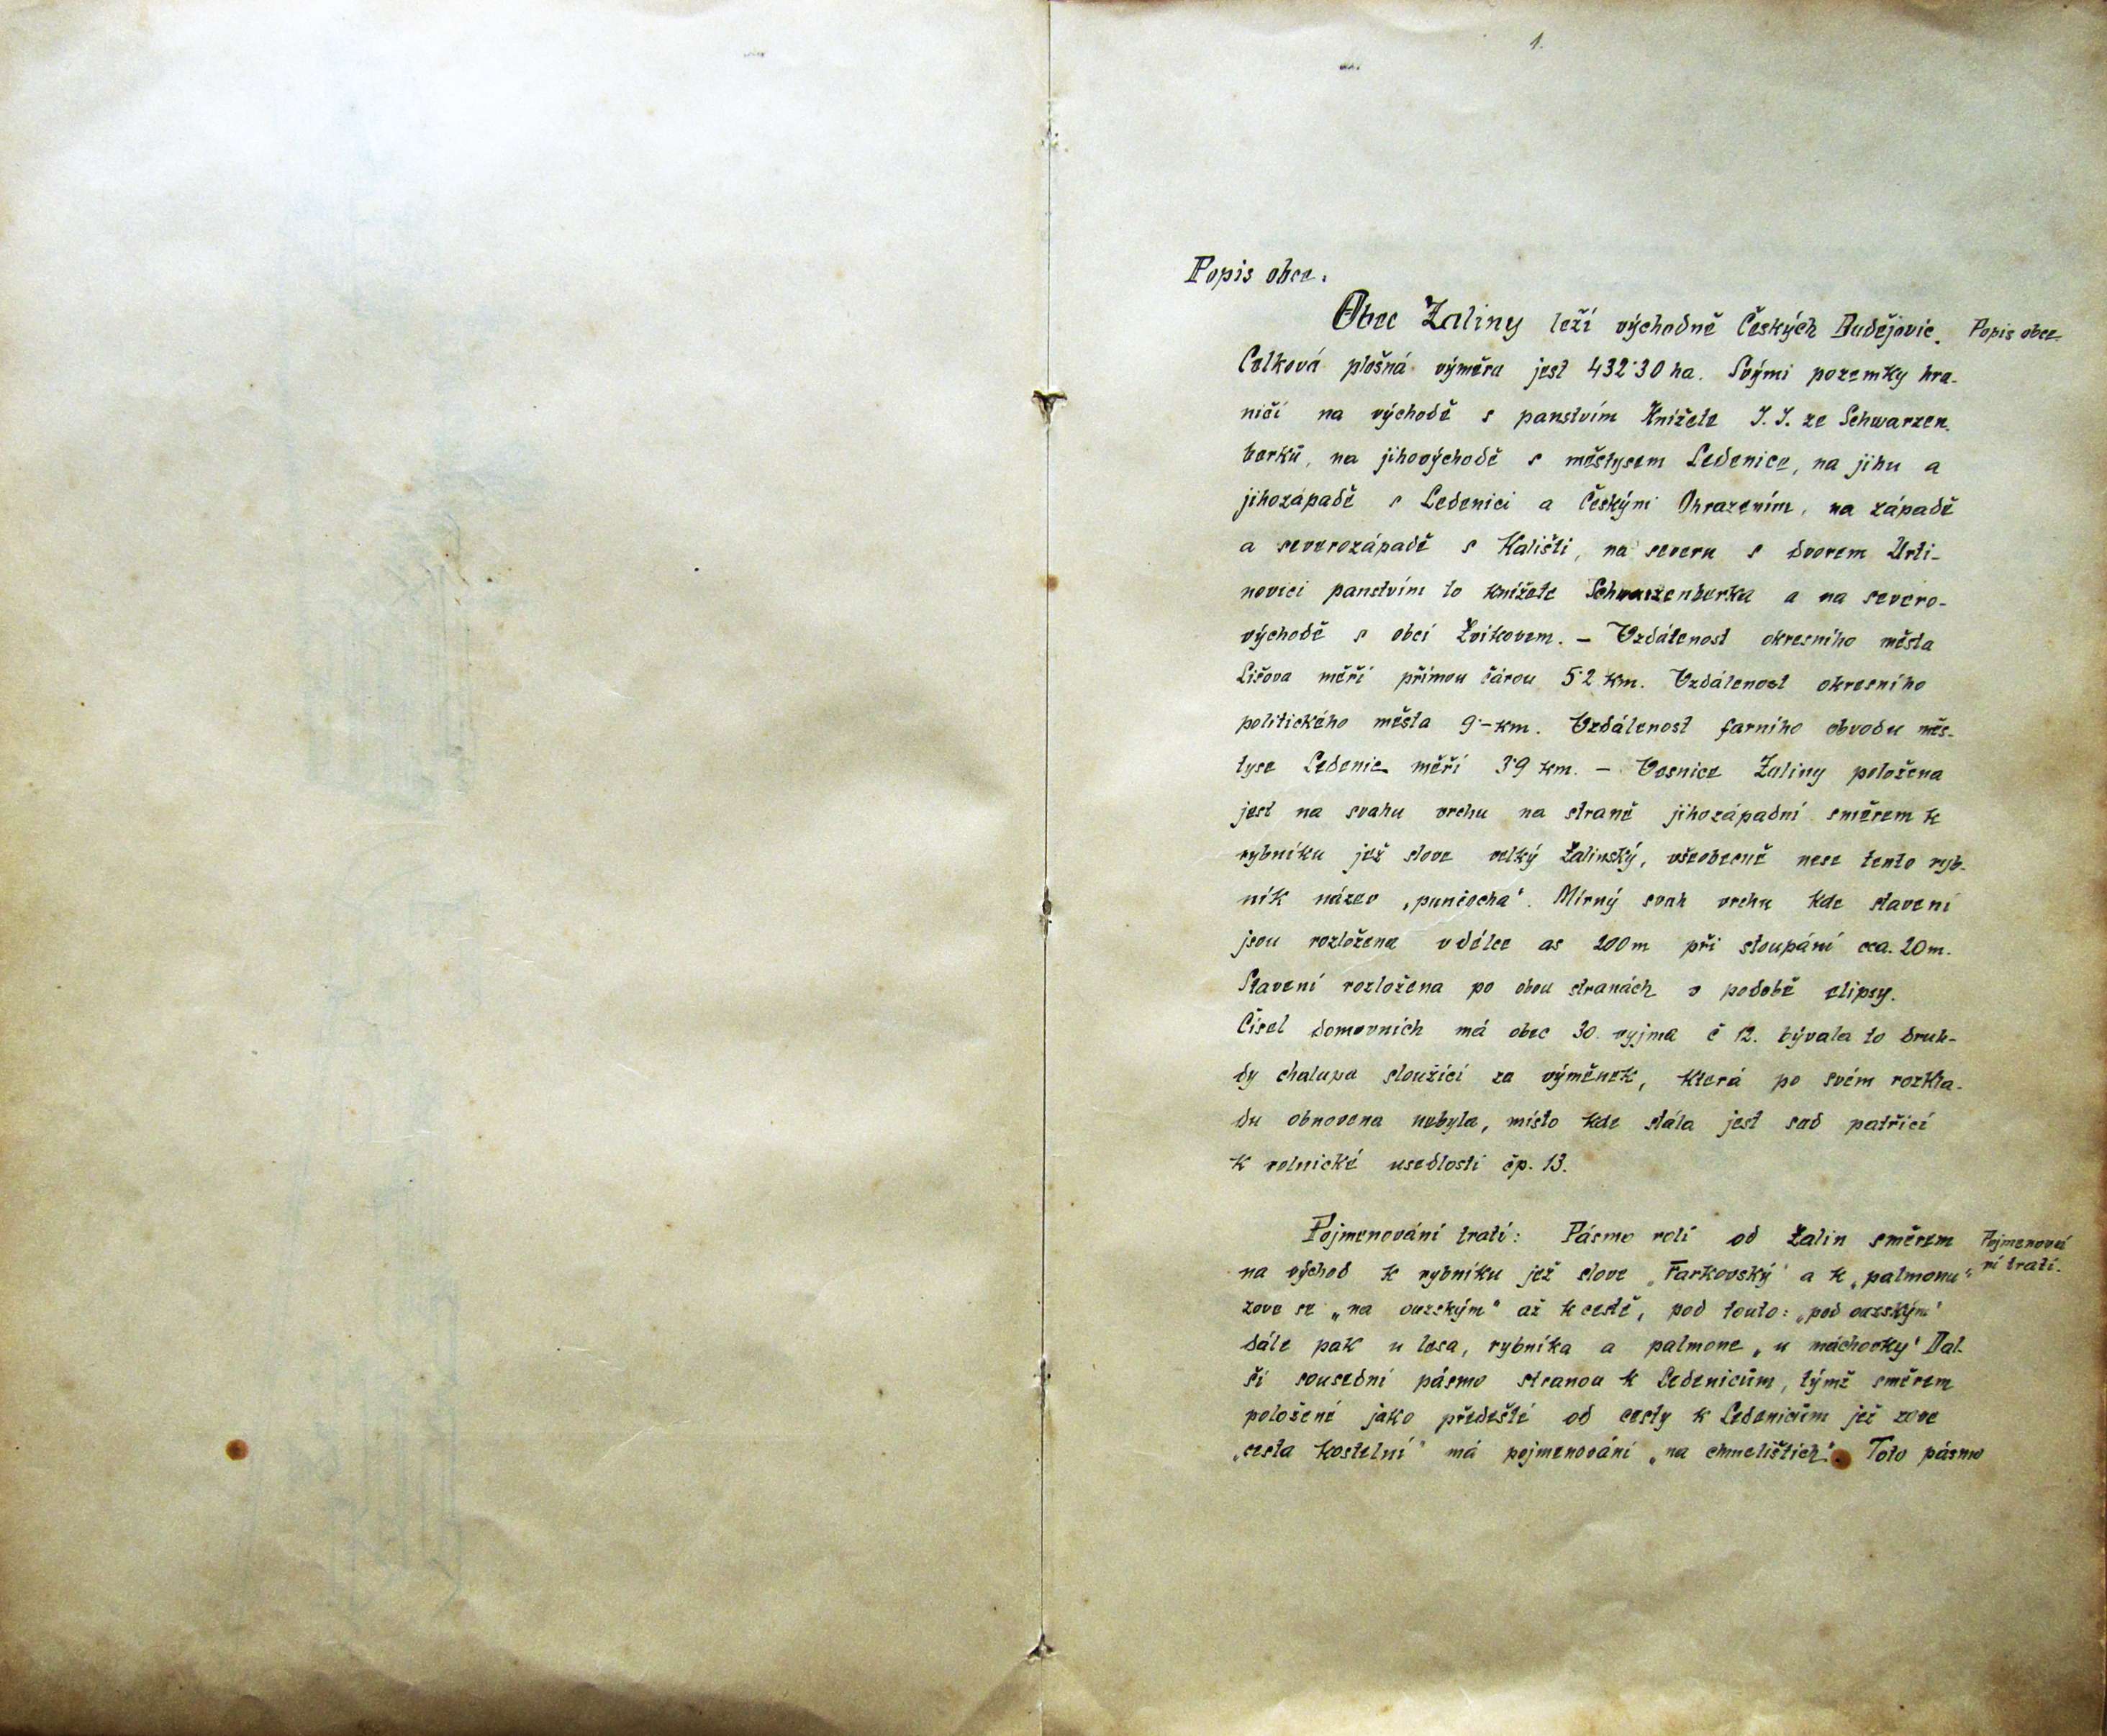 1.
Popis obce.
Obec Žaliny leží východně Českých Budějovic.
Popis obce.
Celková plošná výměra jest 432·30 ha. Svými pozemky hra-
ničí na východě s panstvím Knížete J. J. ze Schwarzen-
berků, na jihovýchodě s městysem Ledenice, na jihu a
jihozápadě s Ledenici a Českým Ohrazením, na západě
a severozápadě s Kališti, na severu s dvorem Vrti-
novici panstvím to knížete Schwarzenberka a na severo-
východě s obcí Zvíkovem. – Vzdálenost okresního města
Lišova měří přímou čárou 5·2 km. Vzdálenost okresního
politického města 9·– km. Vzdálenost farního obvodu měs-
tyse Ledenic měří 3·9 km. – Vesnice Žaliny položena
jest na svahu vrchu na straně jihozápadní směrem k
rybníku jež slove velký Žalinský, všeobecně nese tento ryb-
ník název „punčocha“. Mírný svah vrchu kde stavení
jsou rozložena v délce as 200 m při stoupání cca. 20 m.
Stavení rozložena po obou stranách v podobě elipsy.
Čísel domovních má obec 30. vyjma č 12. bývala to druh-
dy chalupa sloužící za výměnek, která po svém rozkla-
du obnovena nebyla, místo kde stála jest sad patřící
k rolnické usedlosti čp. 13.
Pojmenování tratí: Pásmo rolí od Žalin směrem
Pojmenová-
ní tratí.
na východ k rybníku jež slove „Farkovský“ a k „palmonu“
zove se „na ouzským“ až k cestě, pod touto: „pod ouzským“
dále pak u lesa, rybníka a palmone „u máchorky“ Dal-
ší sousední pásmo stranou k Ledenicům, týmž směrem
položené jako předešlé od cesty k Ledenicům jež zove
„cesta kostelní“ má pojmenování „na chmelištích“. Toto pásmo